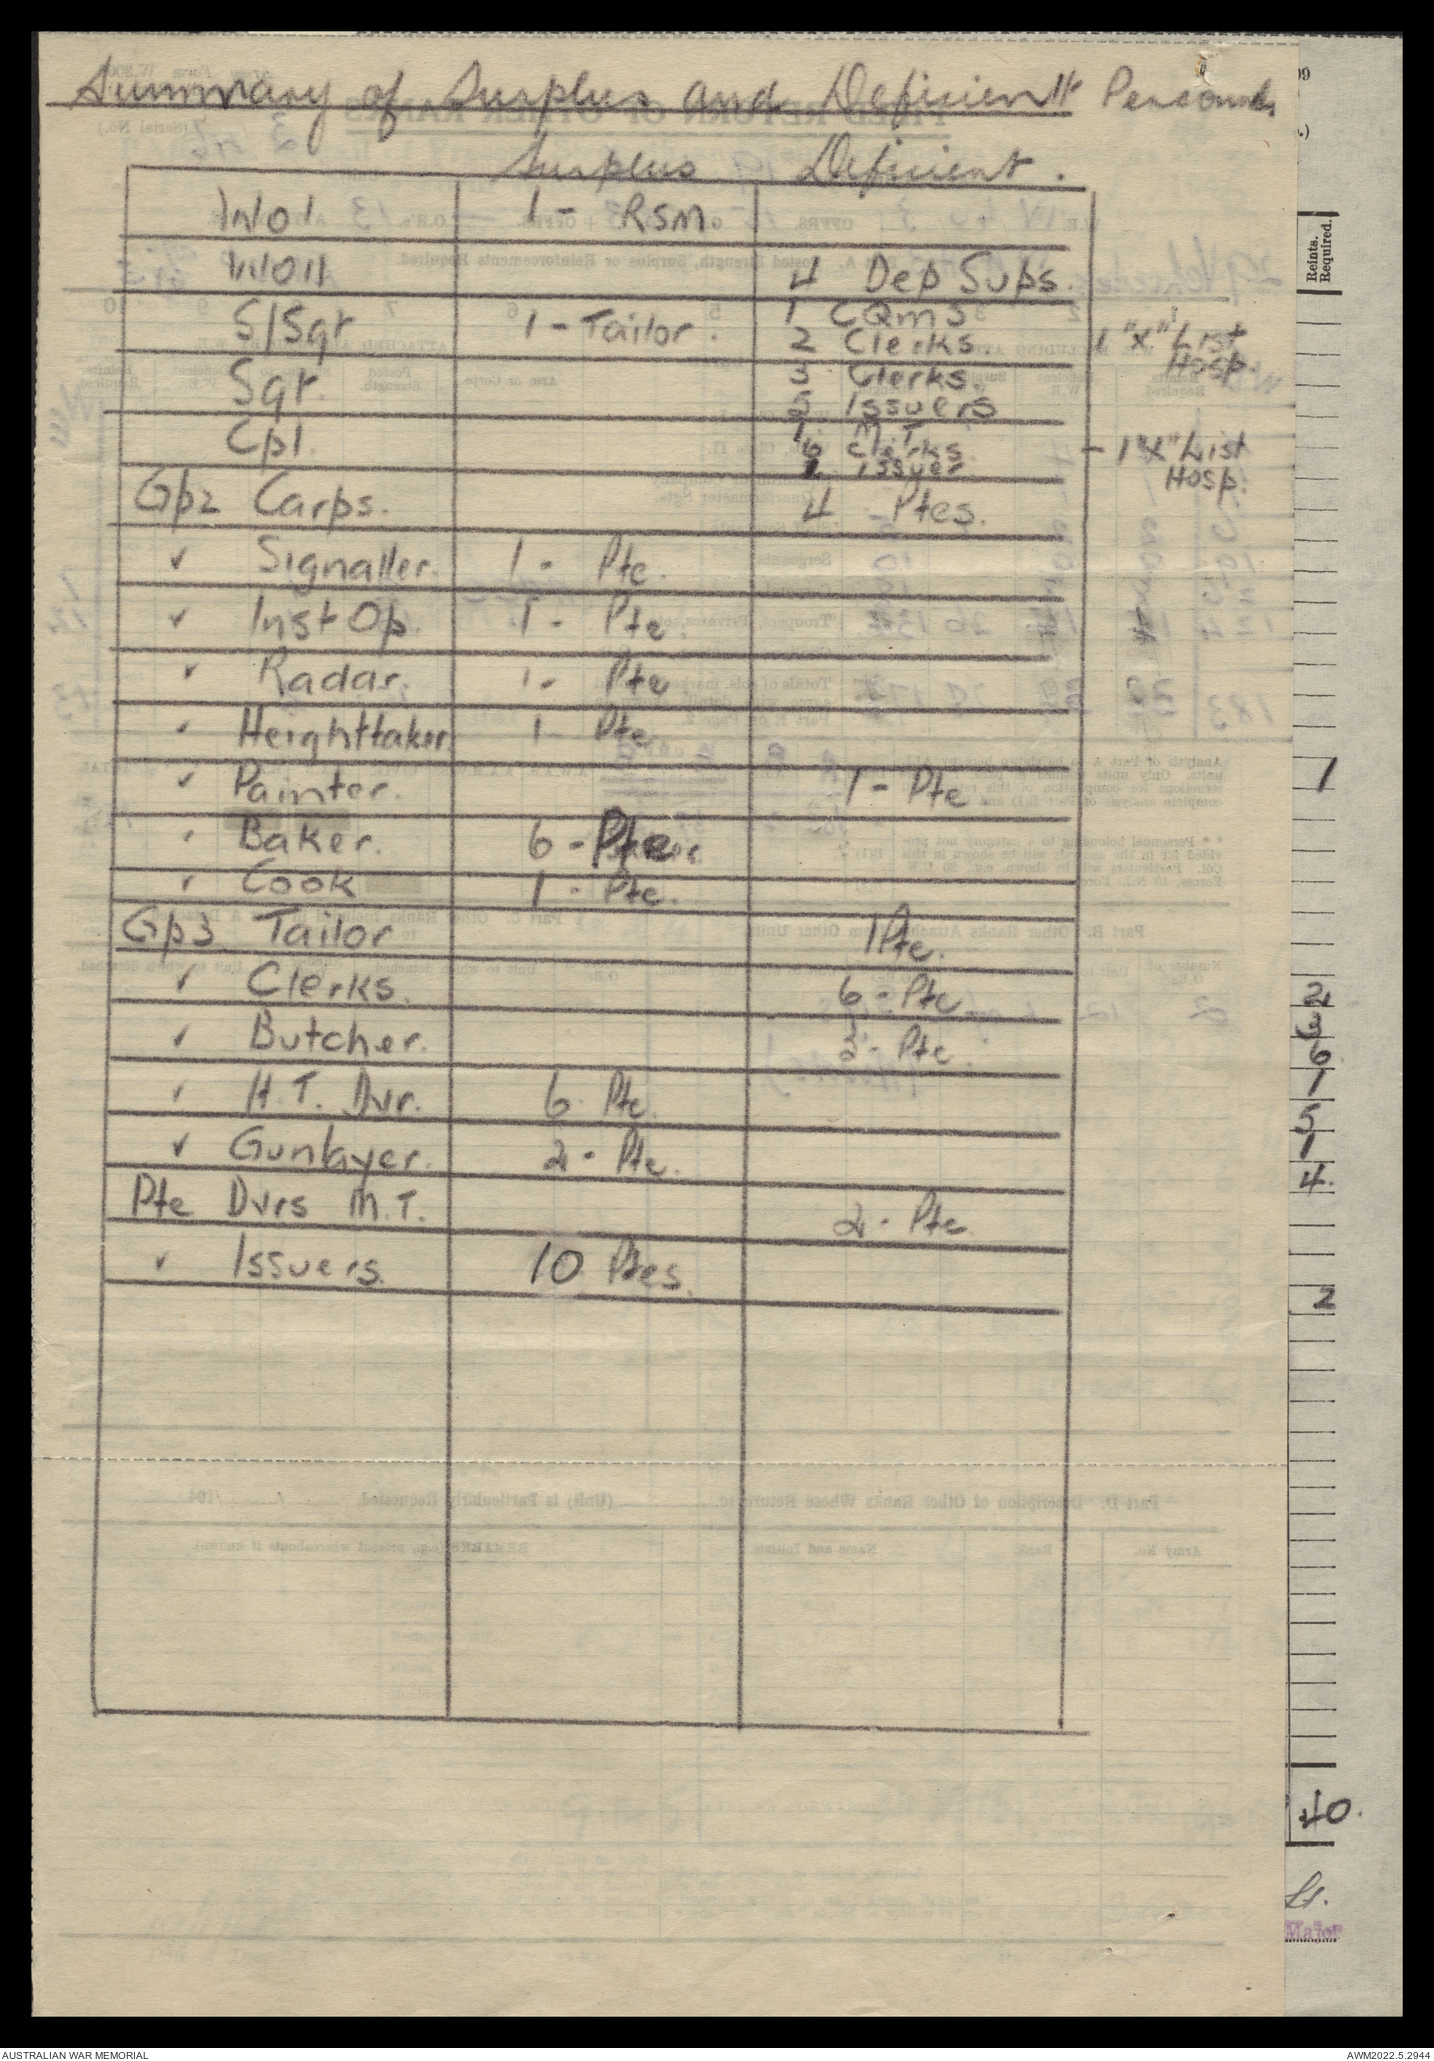 Summary of Surplus and Deficient Personnel
Surplus Deficient.
WO1 1 - RSM
WO11 4 Dep Sups.
S/Sgt 1 - Tailor. 1 CQMS
2 Clerks. 1 "X" List
Hosp.
Sgt. 3 Clerks.
5 Issuers
Cpl. 1 M.T.
6 Clerks. - 1 "X" List
1 Issuer Hosp.
Gp2 Carps. 4 Ptes.
" Signaller. 1 - Pte.
" Inst Op. 1 - Pte.
" Radar. 1 - Pte
" Heighttaker. 1 - Pte
" Painter. 1 - Pte
" Baker. 6 - Pte
" Cook 1 - Pte.
Gp3 Tailor 1 Pte.
" Clerks. 6 - Pte
" Butcher. 3 - Pte.
" H.T. Dvr. 6 Pte.
" Gunlayer. 2 - Pte.
Pte Dvrs M.T. 2 - Pte.
" Issuers. 10 Ptes.
Reints.
Required.
1
2
3
6
1
5
1
4.
2
40.
Major
AUSTRALIAN WAR MEMORIAL AWM2022.5.2944